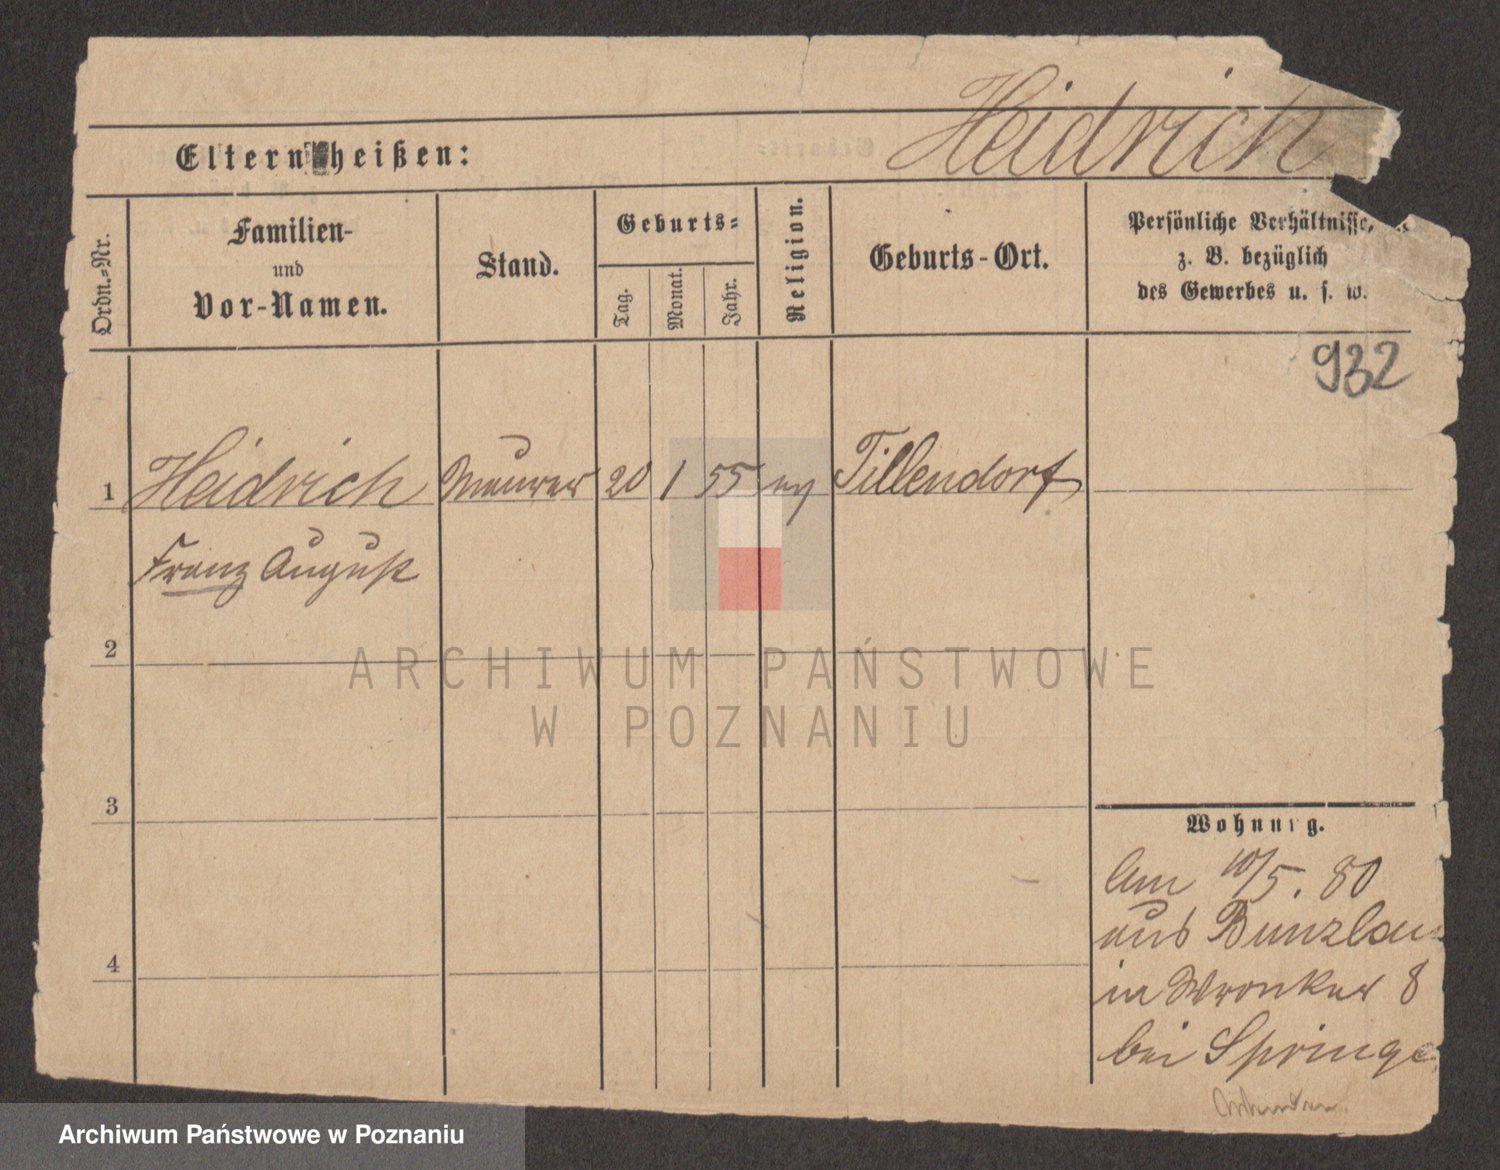 Heidrich
Eltern heißen:
Ordn.-Nr.
Familien-
und
Vor-Namen.
Stand.
Geburts-
Tag.
Monat.
Jahr.
Religion.
Geburts-Ort.
Persönliche Verhältnisse,
z. B. bezüglich
des Gewerbes u. s. w.
932
1 Heidrich Maurer 20 1 55 ev Tillendorf
Franz August
2
ARCHIWUM PAŃSTWOWE
W POZNANIU
3
Wohnung.
Am 10/5. 80
aus Bunzlau
in Wronker 8
bei Springe
4
Archiwum Państwowe w Poznaniu